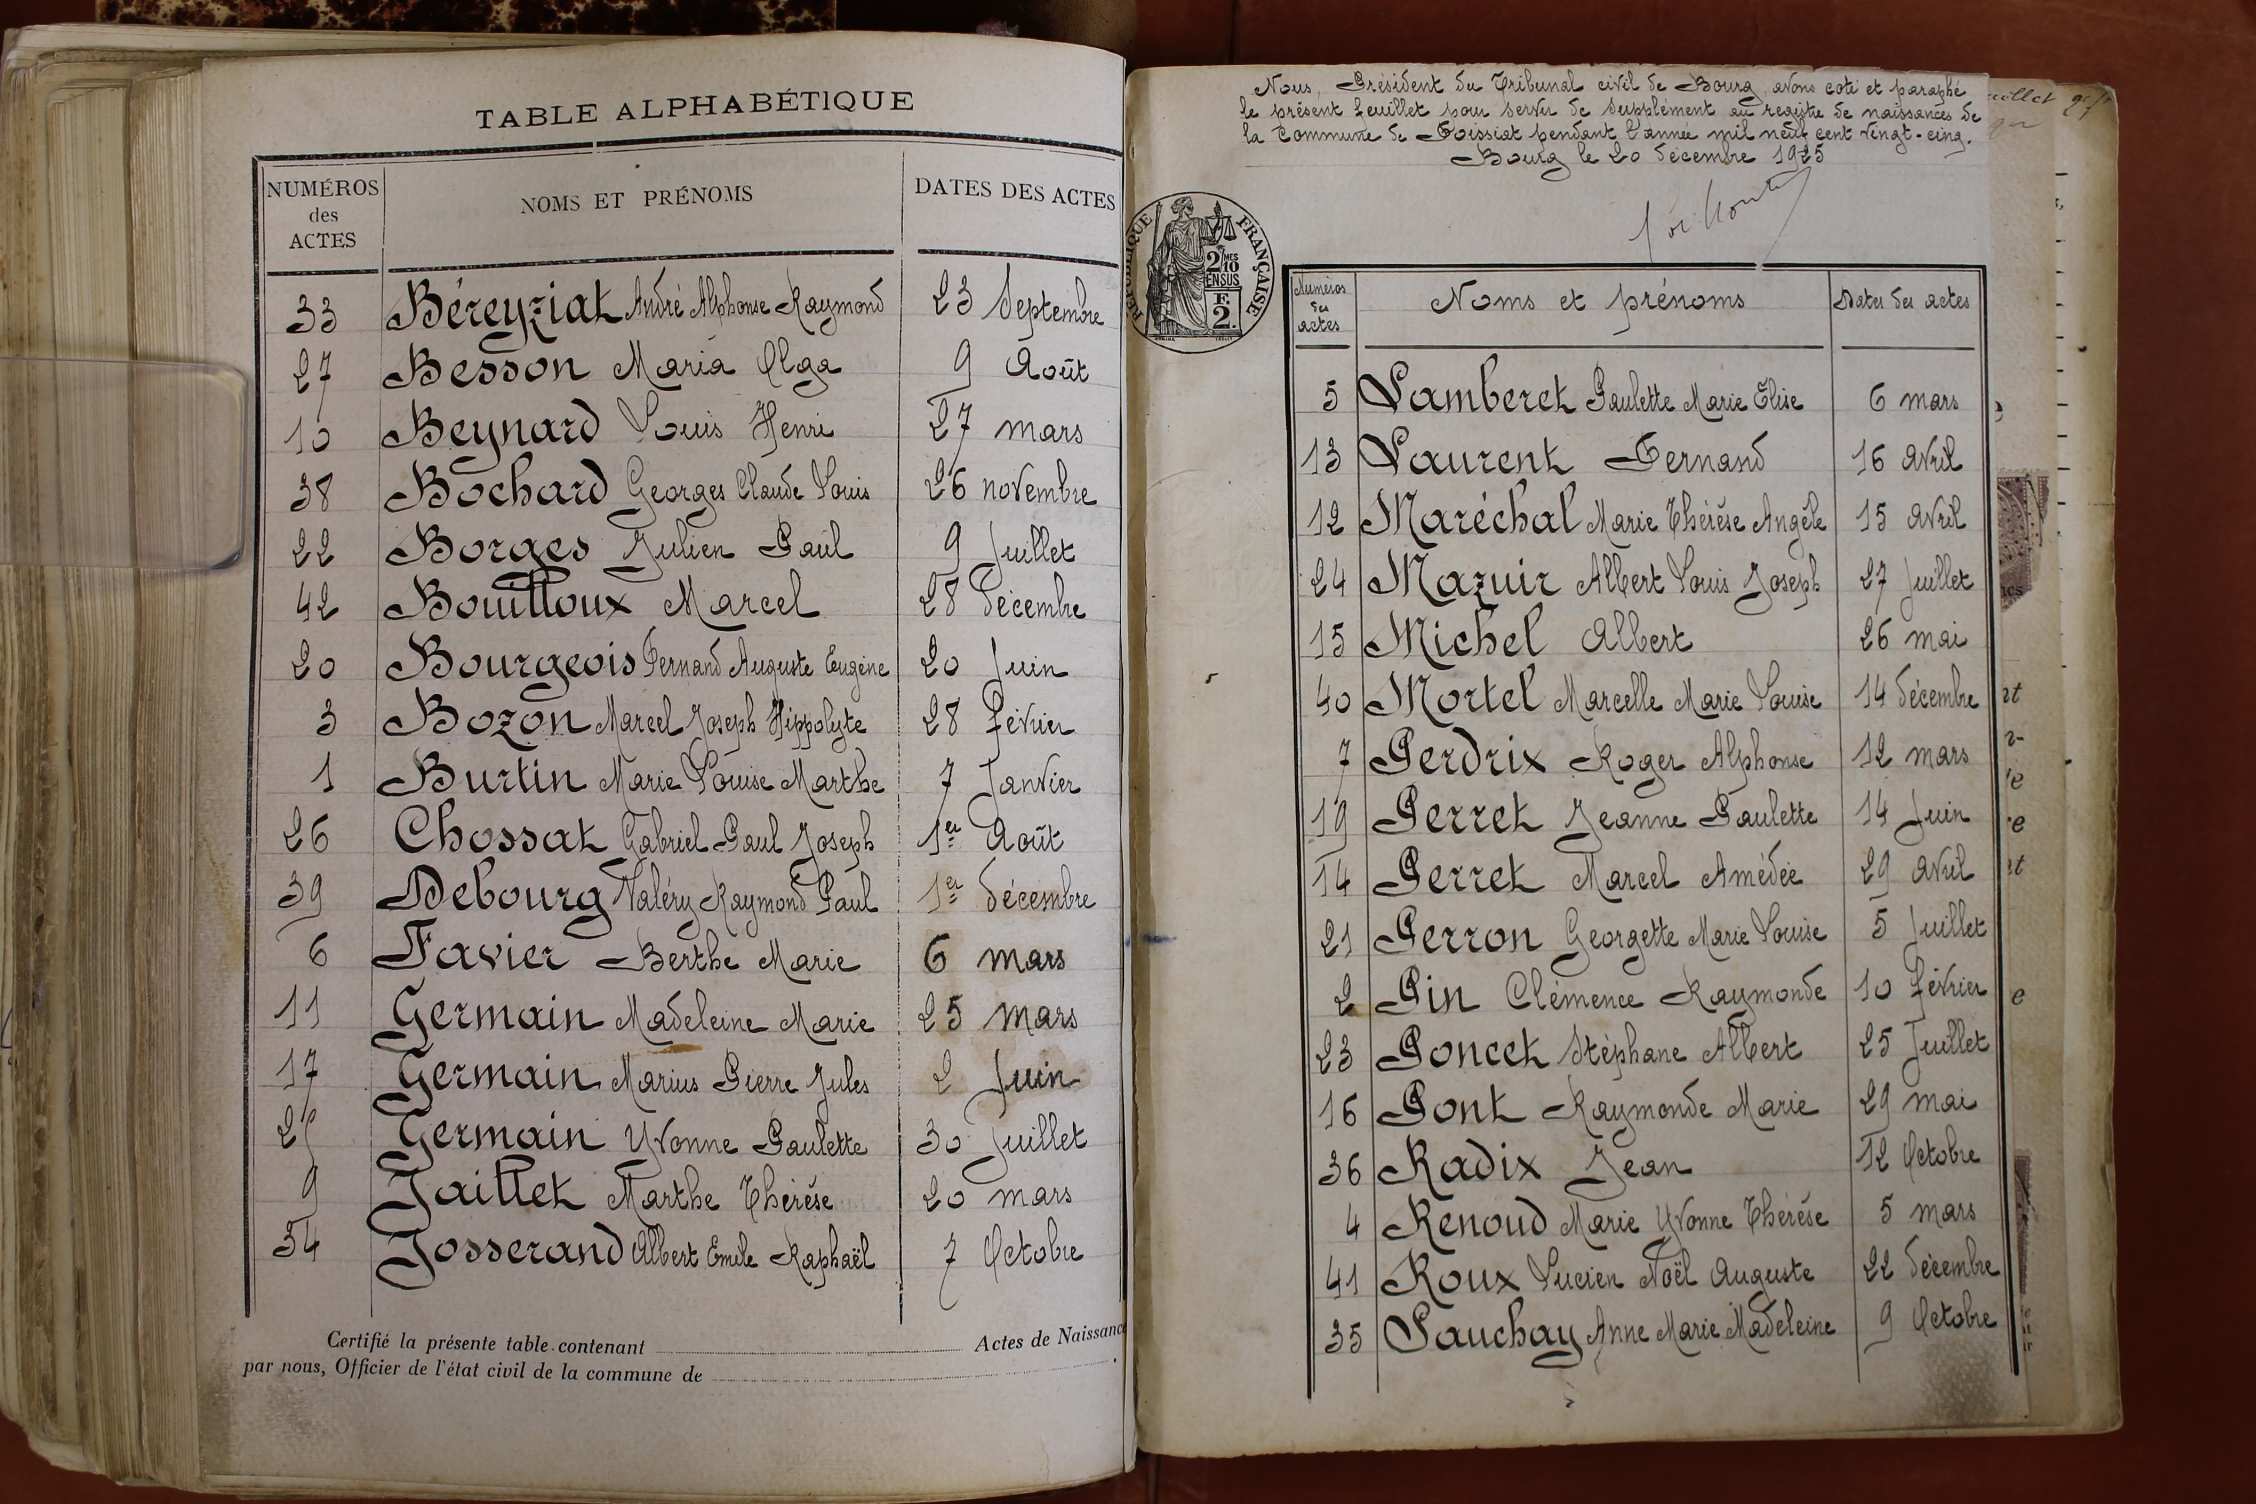 TABLE ALPHABÉTIQUE
NUMÉROS des ACTES NOMS ET PRÉNOMS DATES DES ACTES
33 Béreyziat André Alphonse Raymond 23 Septembre
27 Besson Maria Olga 9 Août
10 Beynard Louis Henri 27 mars
38 Bochard Georges Claude Louis 26 novembre
22 Borges Julien Paul 9 Juillet
42 Bouilloux Marcel 28 décembre
20 Bourgeois Fernand Auguste Eugène 20 Juin
3 Bozon Marcel Joseph Hippolyte 28 février
1 Burtin Marie Louise Marthe 7 Janvier
26 Chossat Gabriel Paul Joseph 1er Août
39 Debourg Valéry Raymond Paul 1er décembre
6 Favier Berthe Marie 6 mars
11 Germain Madeleine Marie 25 mars
17 Germain Marius Pierre Jules 2 Juin
25 Germain Yvonne Paulette 30 Juillet
9 Jaillet Marthe Thérèse 20 mars
34 Josserand Albert Emile Raphaël 7 Octobre
Certifié la présente table contenant Actes de Naissance
par nous, Officier de l'état civil de la commune de
Nous, Président du Tribunal civil de Bourg, avons coté et paraphé
le présent feuillet pour servir de supplément au registre de naissances de
la Commune de Foissiat pendant l'année mil neuf cent vingt-cinq.
Bourg le 20 décembre 1925
RÉPUBLIQUE FRANÇAISE
2/10MES
EN SUS
F.
2.
Numéros des actes Noms et prénoms Dates des actes
5 Lamberet Paulette Marie Elise 6 mars
13 Laurent Fernand 16 avril
12 Maréchal Marie Thérèse Angèle 15 avril
24 Mazuir Albert Louis Joseph 27 Juillet
15 Michel Albert 26 mai
40 Mortel Marcelle Marie Louise 14 décembre
7 Perdrix Roger Alphonse 12 mars
19 Perret Jeanne Paulette 14 Juin
14 Perret Marcel Amédée 29 avril
21 Perron Georgette Marie Louise 5 Juillet
2 Pin Clémence Raymonde 10 février
23 Poncet Stéphane Albert 25 Juillet
16 Pont Raymonde Marie 29 mai
36 Radix Jean 12 Octobre
4 Renoud Marie Yvonne Thérèse 5 mars
41 Roux Lucien Noël Auguste 22 décembre
35 Sauchay Anne Marie Madeleine 9 Octobre